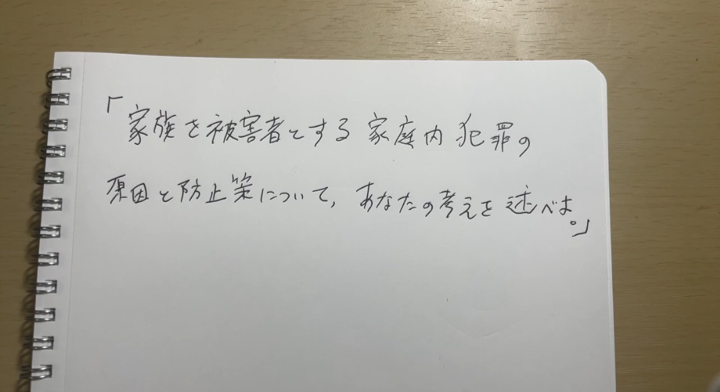 「家族を被害者とする家庭内犯罪の
原因と防止策について, あなたの考えを述べよ。」